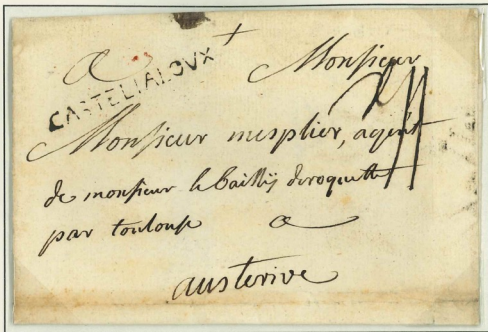 a Monsieur
CASTELIALOUX
Monsieur mesplier, agent
de monsieur le bailly deroquette
par toulouse a
austerive